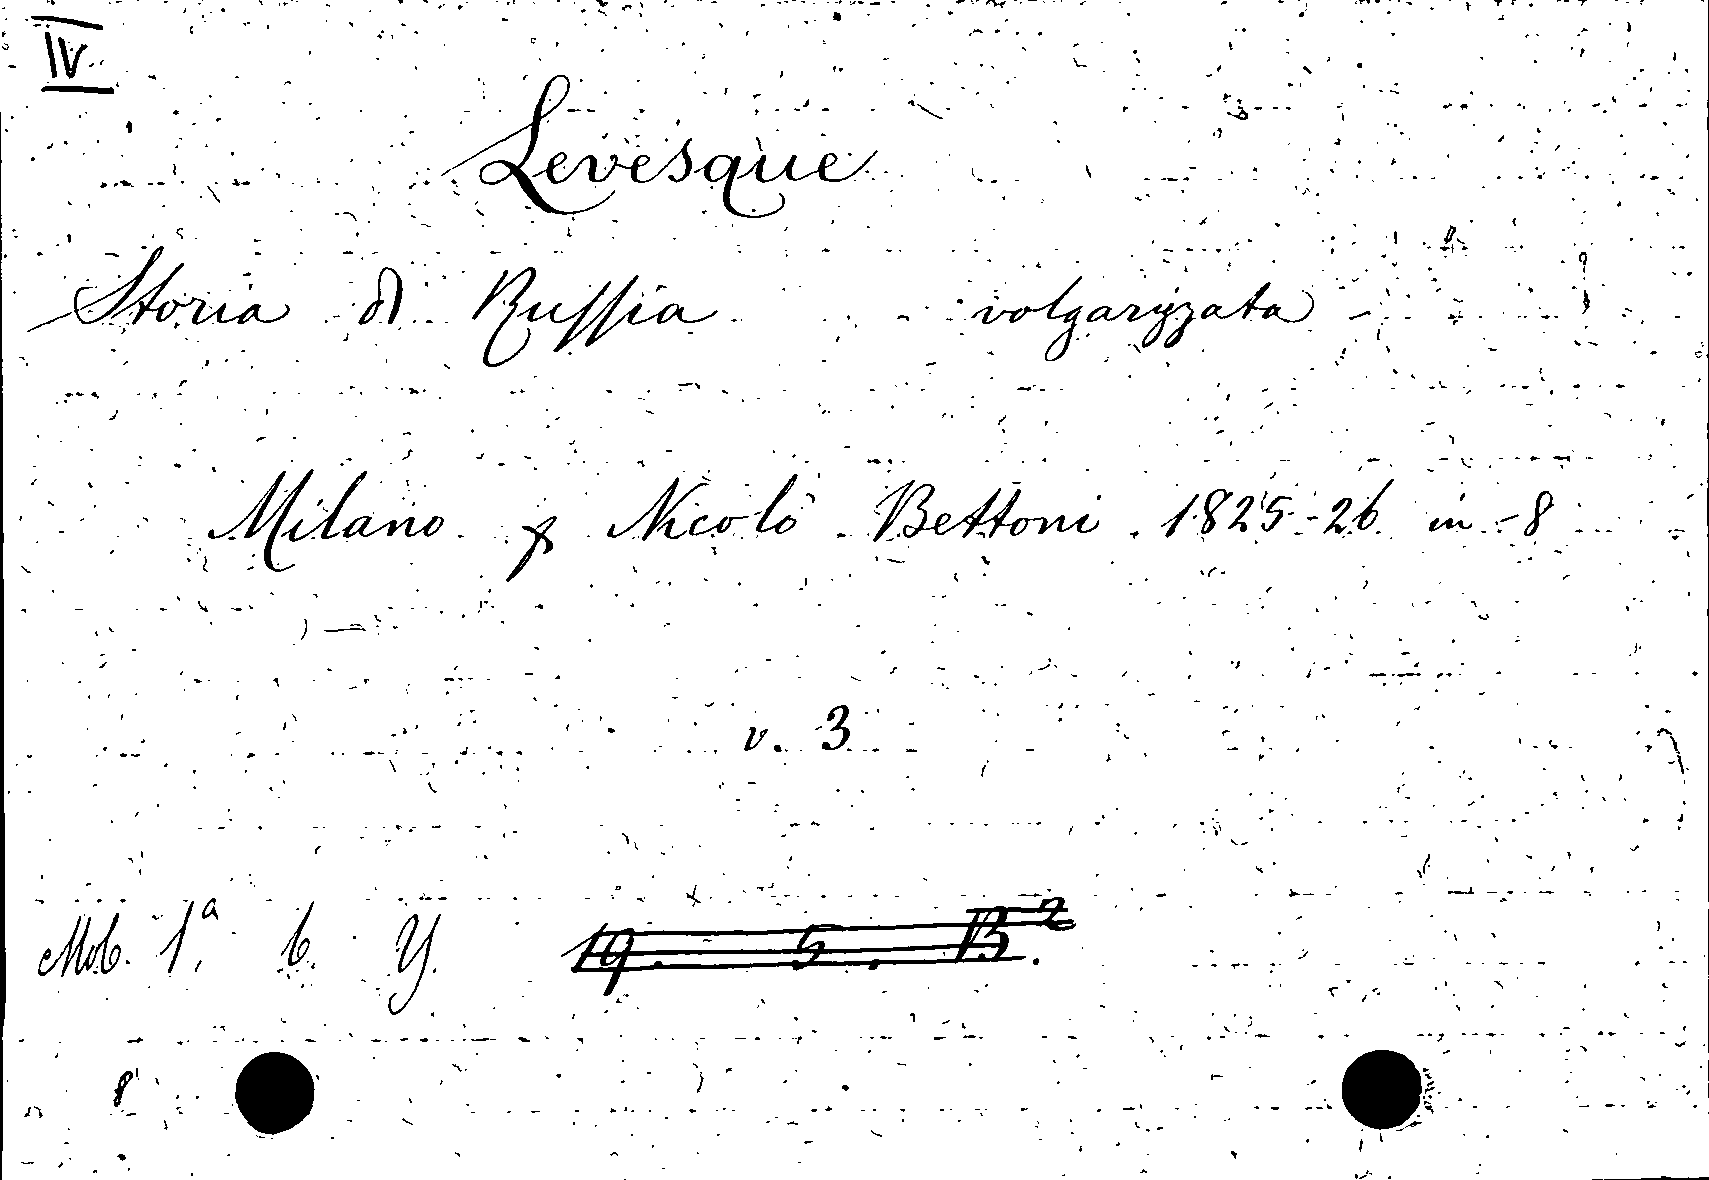 IV
Levesque
Storia di Russia volgarizzata
Milano p Nicolò Bettoni 1825-26 in-8
v. 3
Mob. 1.a b. Y. 19. 5. B2.
8